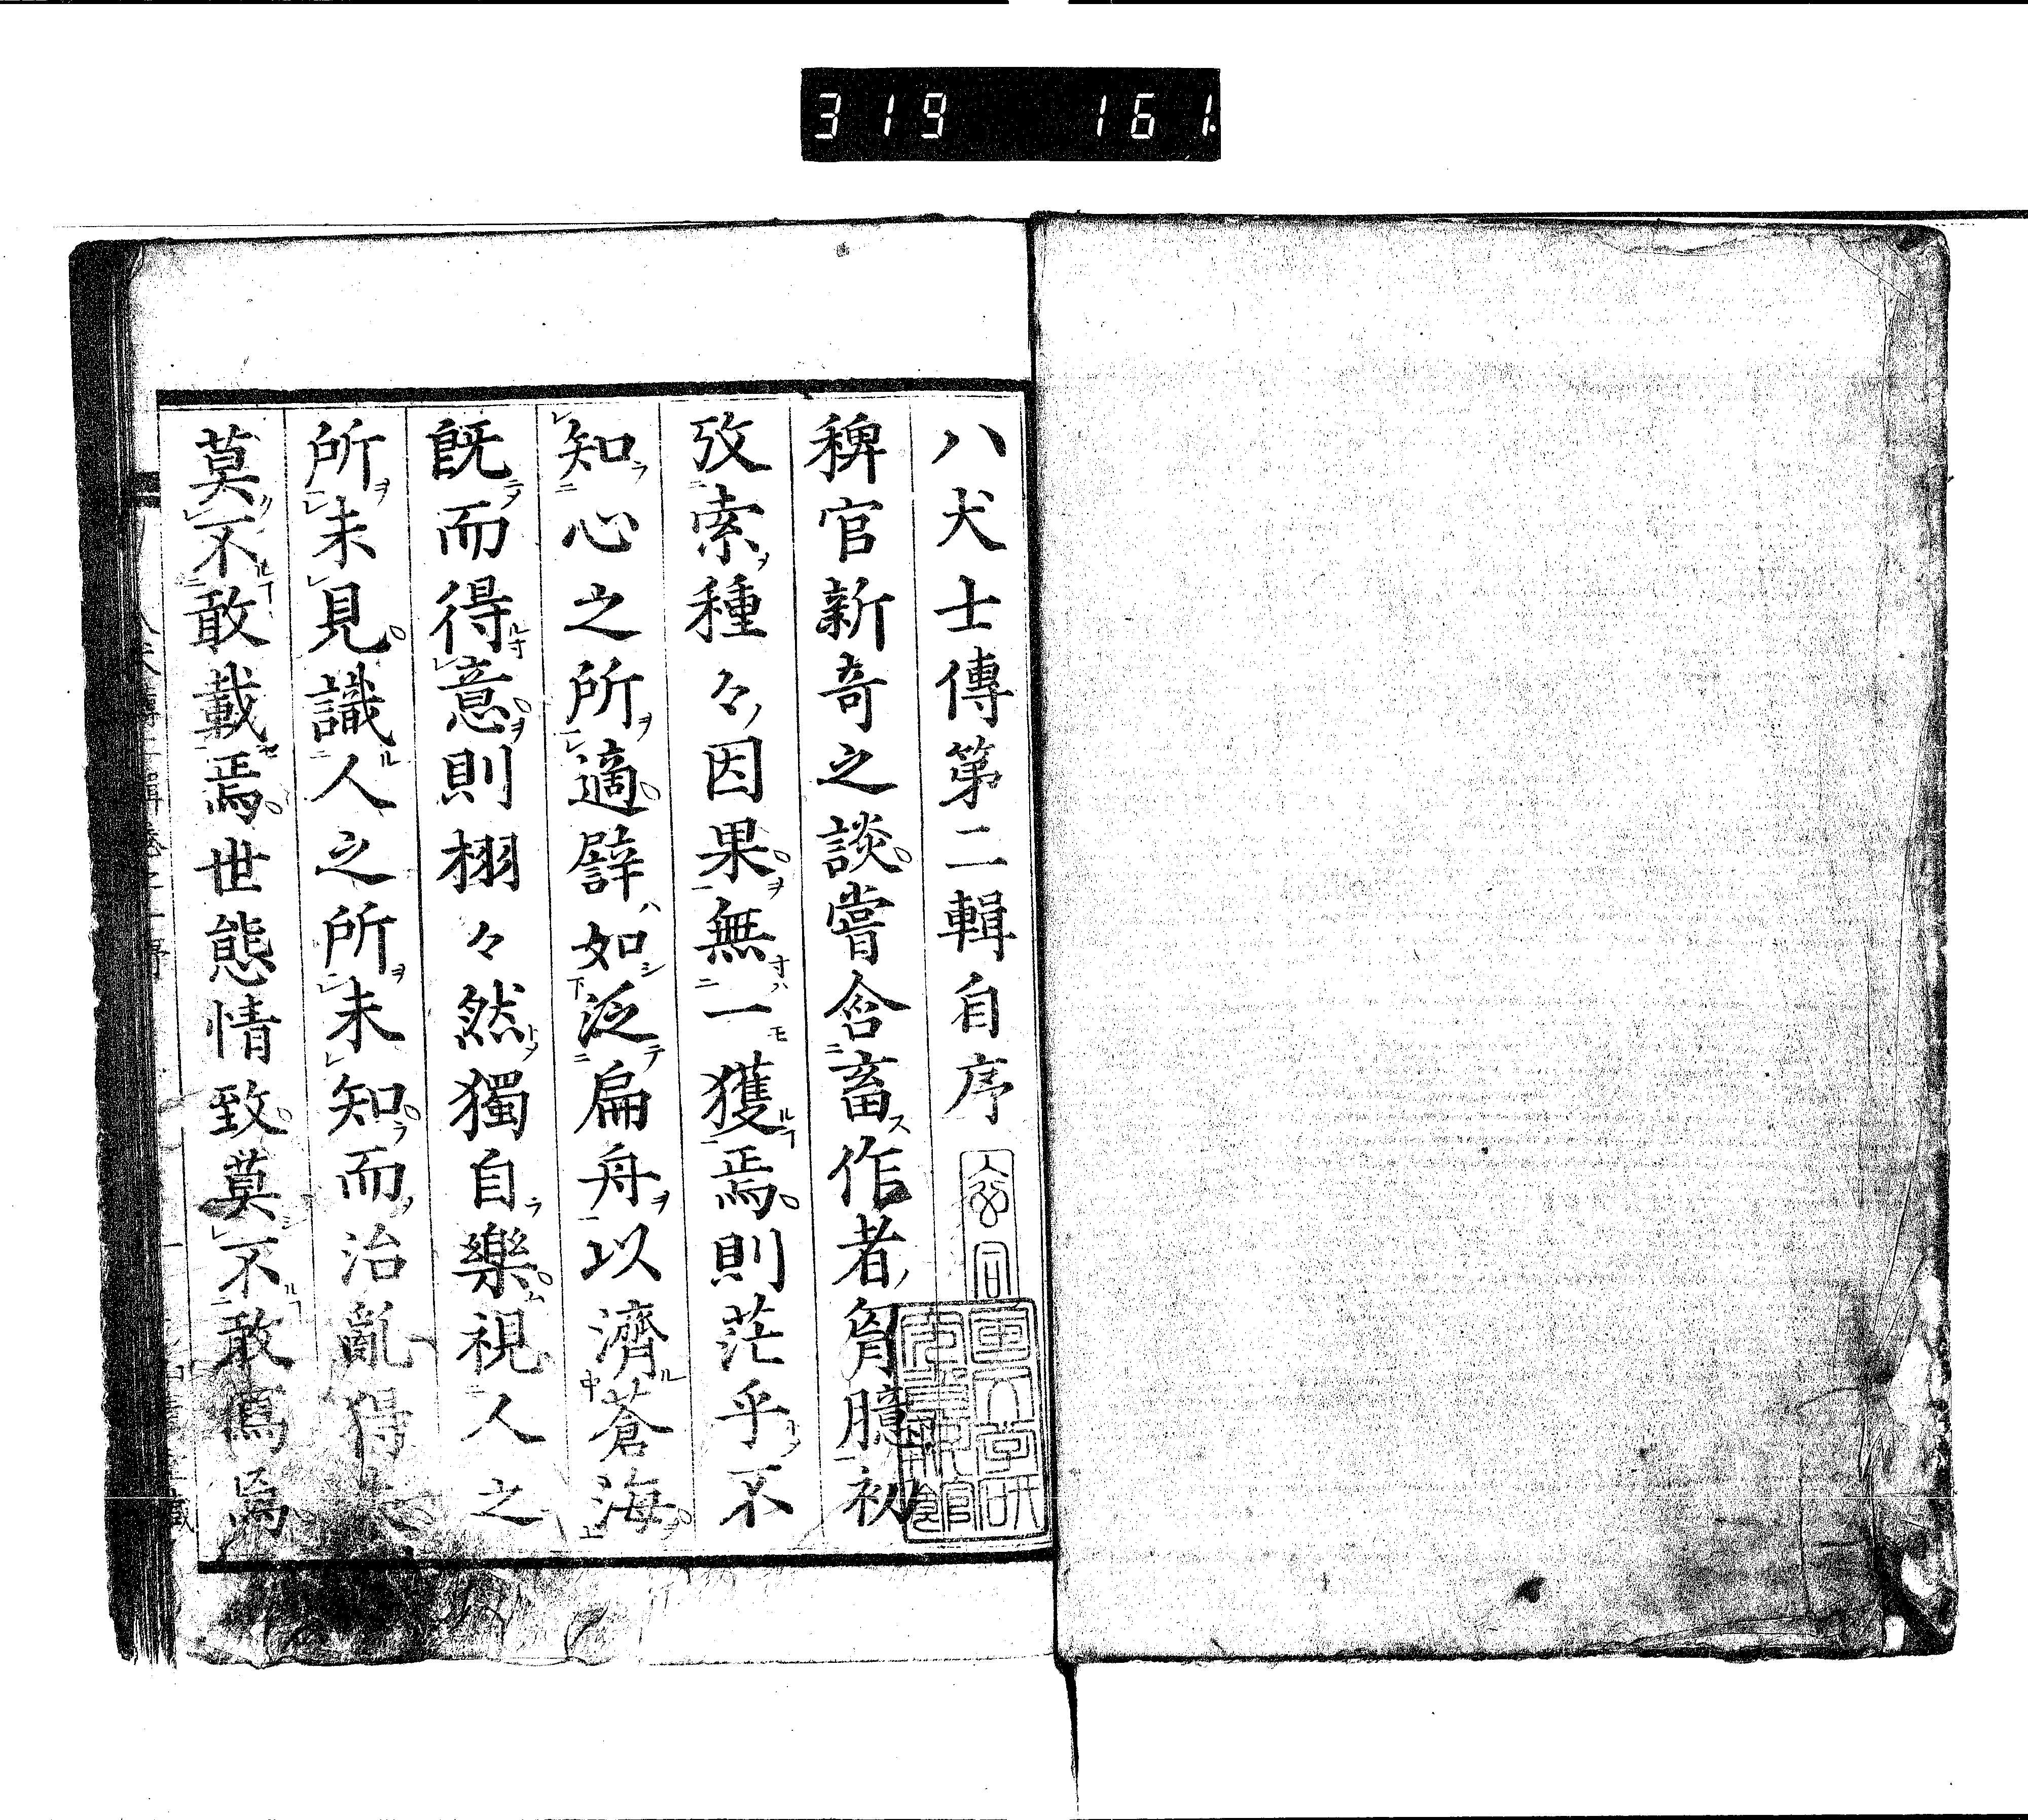 319 161
八犬士傳第二輯自序
稗官新奇之談嘗含畜作者胷臆初
攷索種々因果無一獲焉則茫乎不
知心之所適譬如泛扁舟以濟蒼海
既而得意則栩々然獨自樂視人之
所未見識人之所未知而治亂得失
莫不敢載焉世態情致莫不敢寫焉